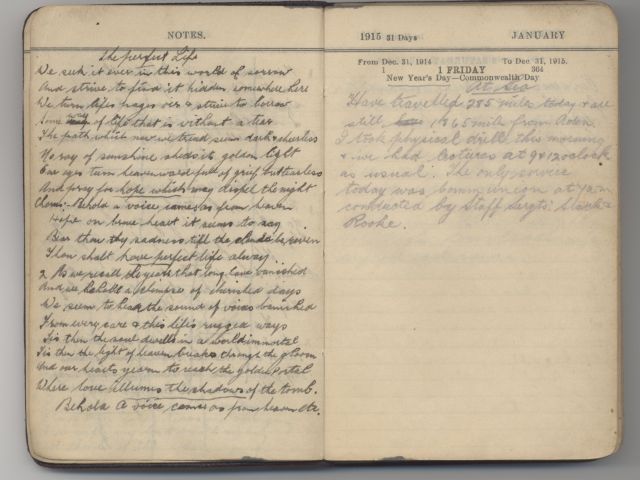 NOTES.
The perfect Life
We seek it ever in this world of sorrow
And strive to find it hidden somewhere here
We turn lifes pages oer & strive to borrow
Some of life that is without a tear
The path which now we tread seems dark & cheerless
No ray of sunshine sheds its golden light
Our eyes turn heavenward full of grief but tearless
And pray for hope which may dispel the night
Behold a voice comes as from heaven
Hope on brave heart it seems to say
Bear thou thy sadness till the clouds be riven
Thou shalt have perfect life alway
2 As we recall the years that long have vanished
And we behold a glimpse of cherished days
We seem to hear the sound of voices banished
From every care & this life's rugged ways
Tis then the soul dwells in a world immortal
Tis then the light of heaven breaks through the gloom
And our hearts yearn to reach the golden Portal
Where love illumes the shadows of the tomb.
Behold a voice comes as from heaven etc.
1915 31 Days JANUARY
From Dec. 31, 1914 To Dec 31, 1915.
1 1 FRIDAY 364
New Year's Day—Commonwealth Day
At Sea
Have travelled 285 miles today & are
still 1865 miles from Aden.
I took physical drill this morning
& we had lectures at 9 & 12 o'clock
as usual. The only service
today was communion at 7 a.m.
conducted by Staff Sergts:
Rooke.